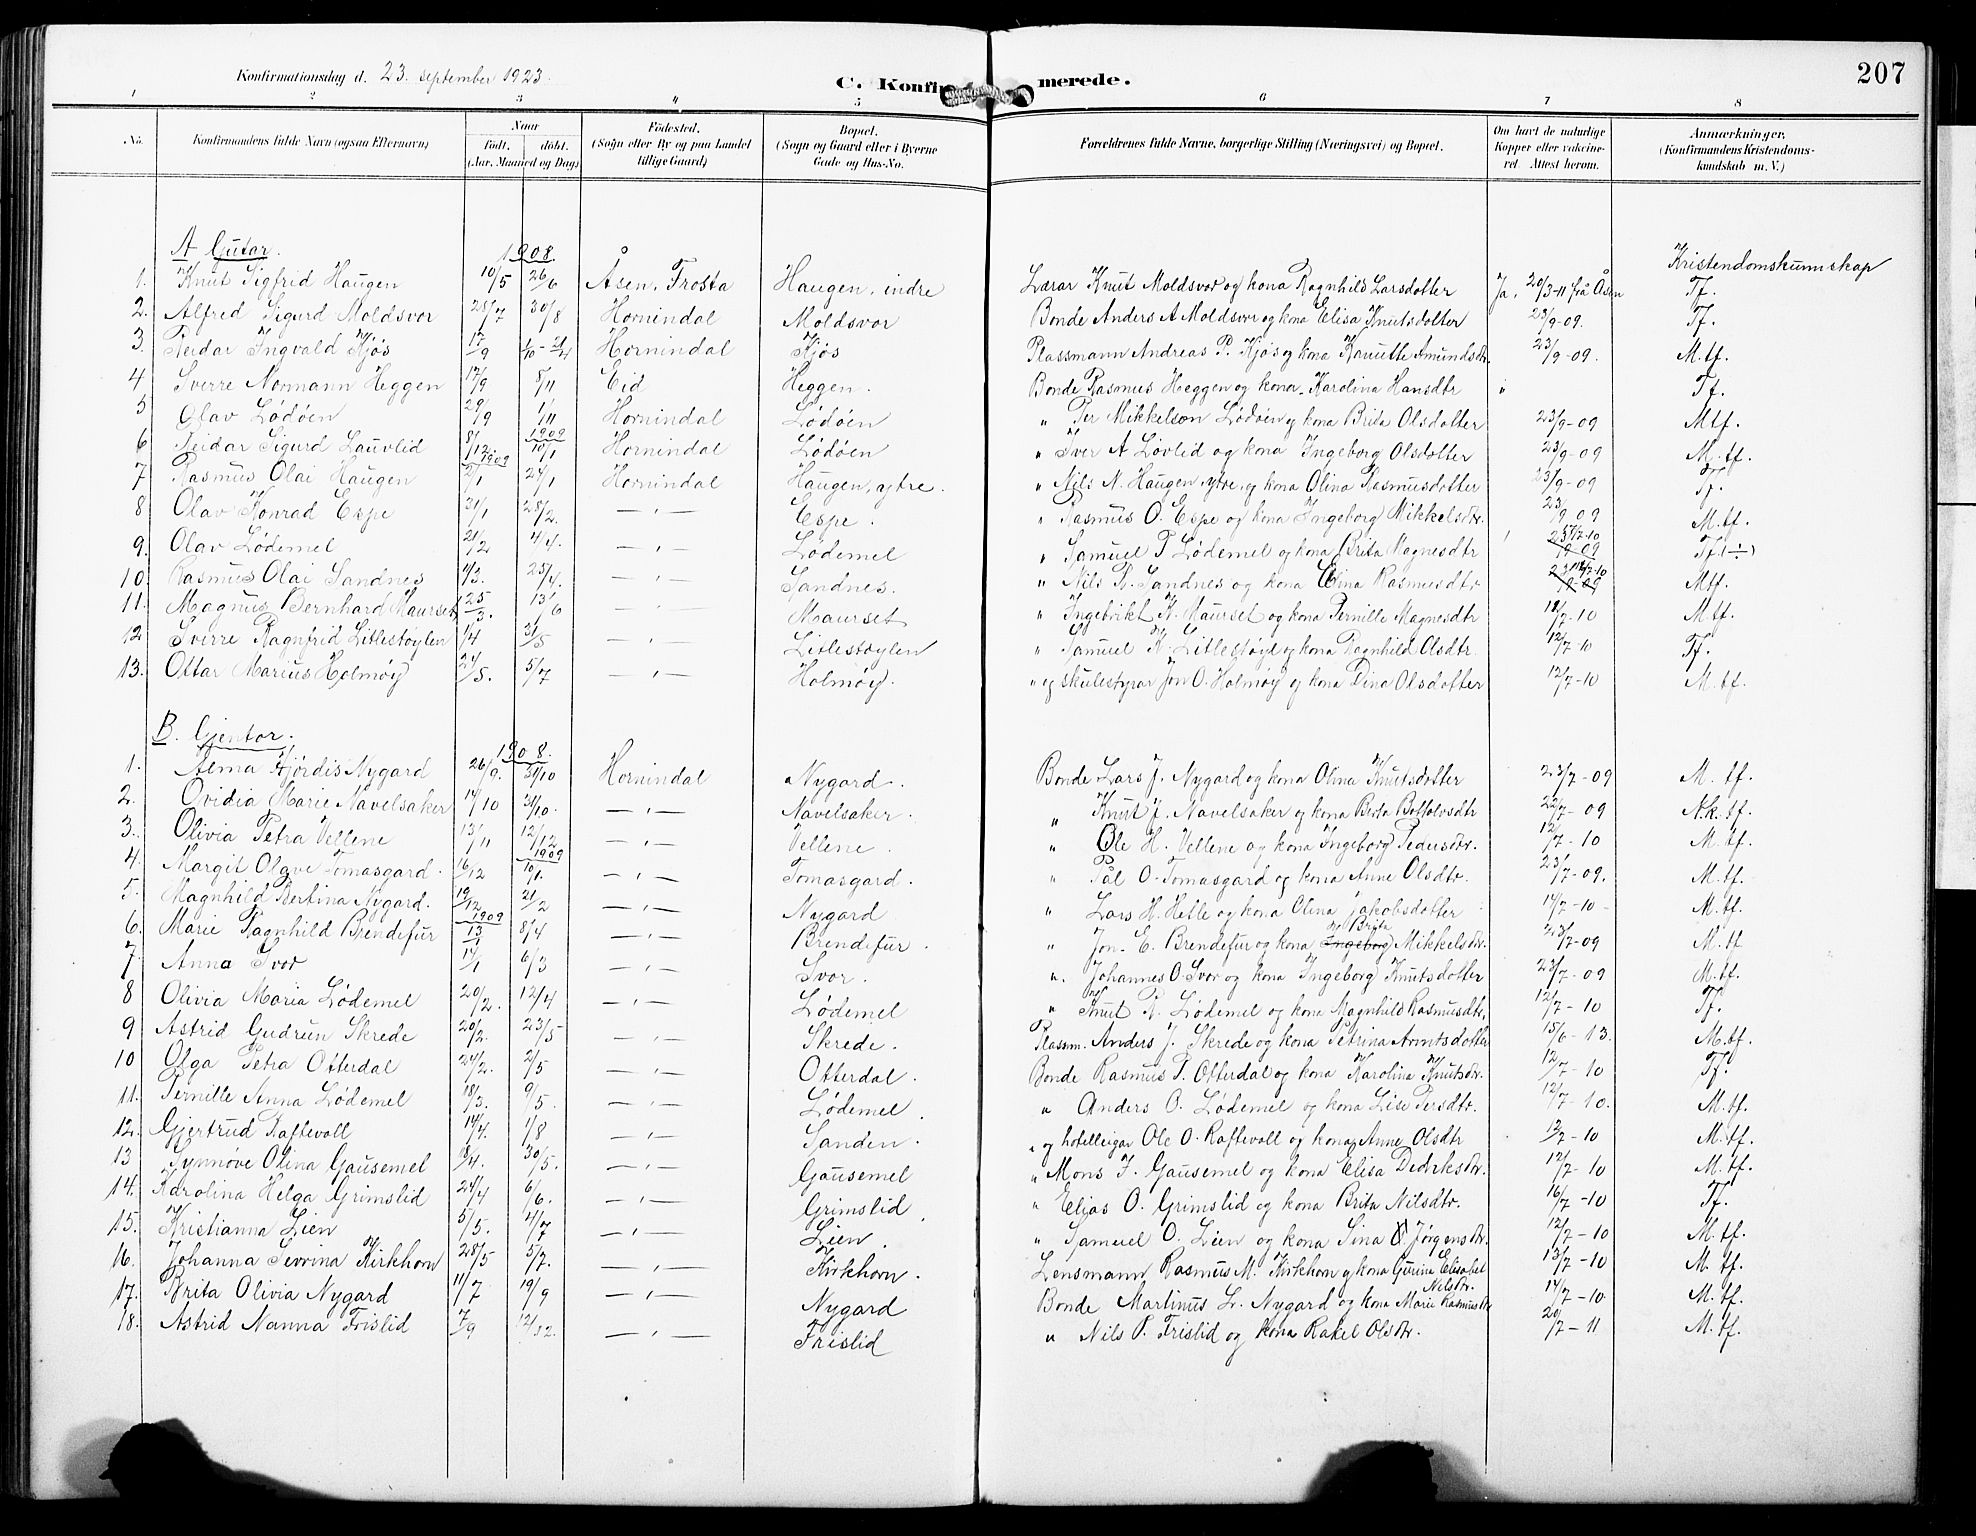 Konfirmationsdag d. 23. september 1923.
C. Konfirmerede.
207
1 2 3 4 5 6 7 8
No. Konfirmandens fulde Navn (ogsaa Efternavn) Naar Født. døbt. (Aar, Maaned og Dag) Fødested. (Sogn eller By og paa Landet tillige Gaard) Bopæl. (Sogn og Gaard eller i Byerne Gade og Hus-No. Forældrenes fulde Navne, borgerlige Stilling (Næringsvei) og Bopæl. Om havt de naturlige Kopper eller vakcineret. Attest herom. Anmærkninger, (Konfirmandens Kristendomskundskab m. V.)
A Gutar. 1908. Kristendomskunnskap
1. Knut Sigfrid Haugen 10/5 26/6 Åsen, Frosta Haugen, indre Lærar Knut Moldsvor og kona Ragnhild Larsdotter Ja, 20/3-11 frå Åsen Tf.
2. Alfred Sigurd Moldsvor 28/7 30/8 Hornindal Moldsvor Bonde Anders A Moldsvor og kona Elisa Knutsdotter 23/9-09. Tf.
3. Reidar Ingvald Kjøs 17/9 Hornindal Kjøs Plassmann Andreas P. Kjøs og kona Kanutte Amundsdtr. 23/9-09. M.tf.
4 Sverre Normann Heggen 17/9 8/11 Eid Heggen. Bonde Rasmus Heggen og kona Karolina Hansdtr Tf.
5 Olav Lødøen 29/9 1/11 Hornindal Lødøen " Per Mikkelson Lødøen og kona Brita Olsdotter 23/9-09 Mtf.
6 Reidar Sigurd Lauvlid 8/12 1909 10/1 Hornindal Lødøen " Iver A Løvlid og kona Ingeborg Olsdotter 23/9-09 M.tf.
7 Rasmus Olai Haugen 1909 2/1 24/1 Hornindal Haugen, ytre. " Nils N. Haugen ytre og kona Olina Rasmusdotter 23/9-09 Tf.
8 Olav Konrad Espe 31/1 28/2. — " — Espe. " Rasmus O. Espe og kona Ingeborg Mikkelsdtr. 23/9 09 M.tf.
9. Olav Lødemel 21/2 4/4. — " — Lødemel " Samuel P Lødemel og kona Brita Magnesdtr Tf (÷)
10. Rasmus Olai Sandnes 4/3. 25/4. — " — Sandnes. " Nils R. Sandnes og kona Elina Rasmusdtr Mtf.
11. Magnus Bernhard Maurset 25/3. 13/6 — " — Maurset " Ingebrikt K. Maurset og kona Pernille Magnesdtr 18/7-10 M.tf.
12 Sverre Ragnfrid Litlestøylen 1/4 31/5 — " — Litlestøylen " Samuel K. Litlestøyl og kona Ragnhild Olsdtr. 12/7-10 Tf.
13. Ottar Marius Holmøy 24/5. 5/7 — " — Holmøy. " og skulestyrar Jon O. Holmøy og kona Dina Olsdotter 12/7-10 M.tf.
B. Gjentor. 1908.
1. Alma Hjørdis Nygard 26/9. 31/10 Hornindal Nygard. Bonde Lars J. Nygard og kona Olina Knutsdotter 23/7-09 M.tf.
2. Ovidia Marie Navelsaker 14/10 31/10. — " — Navelsaker. " Knut J. Navelsaker og kona Berta Botfolvsdtr 22/7-09 N.k. tf.
3. Olivia Petra Vellene 13/11 12/12 — " — Vellene. " Ole H. Vellene og kona Ingeborg Pedersdtr. 12/7-10 M.tf.
4. Margit Olave Tomasgard. 16/12 1909 10/1. — " — Tomasgard. " Pål O. Tomasgard og kona Anne Olsdtr. 23/7-09. M.tf.
5. Magnhild Bertina Nygard. 19/12 21/2 — " — Nygard " Lars H. Helle og kona Olina Jakobsdotter 14/7-10- M.tf.
6. Marie Ragnhild Brendefur 1909 13/1 8/4 — " — Brendefur. " Jon E. Brendefur og kona Ingeborg Brita Mikkelsdtr. 23/7-09 M.tf
7. Anna Svor 14/1 6/3 — " — Svor. " Johannes O. Svor og kona Ingeborg Knutsdotter 23/7-09 M.tf.
8 Olivia Maria Lødemel 20/2. 12/4 — " — Lødemel " Knut R. Lødemel og kona Magnhild Rasmusdtr. 12/7-10 Tf.
9 Astrid Gudrun Skrede 20/2. 23/5 — " — Skrede. Plassm. Anders J. Skrede og kona Petrina Arntsdotter 15/6-13. M.tf.
10 Olga Petra Otterdal 24/2. 2/5 — " — Otterdal. Bonde Rasmus P. Otterdal og kona Karolina Knutsdtr. 12/7-10 Tf.
11. Pernille Anna Lødemel 18/3. 9/5. — " — Lødemel. " Anders O. Lødemel og kona Lise Persdtr. 12/7-10. M.tf.
12. Gjertrud Raftevoll 14/4. 1/8 — " — Sanden. " og hotelleigar Ole O. Raftevoll og kona Anne Olsdtr 12/7-10 M.tf.
13 Synnøve Olina Gausemel 18/4. 30/5. — " — Gausemel " Mons J. Gausemel og kona Elisa Didriksdtr. 12/7-10 M.tf.
14. Karolina Helga Grimslid 24/4 6/6. — " — Grimslid. " Elias O. Grimslid og kona Brita Nilsdtr. 16/7-10 Tf.
15. Kristianna Lien 5/5. 4/7 — " — Lien. " Samuel O. Lien og kona Sina Jørgensdtr. 12/7-10 M.tf.
16. Johanna Severina Kirkhorn 28/5 5/7. — " — Kirkhorn. Lensmann Rasmus M. Kirkhorn og kona Gurina Elisabet Nilsdtr. 13/7-10 M.tf.
17. Brita Olivia Nygard 11/7 19/9 — " — Nygard Bonde Martinus L. Nygard og kona Marie Rasmusdtr 14/7-10 M.tf.
18. Astrid Nanna Frislid 7/9 12/12. — " — Frislid " Nils P. Frislid og kona Rakel Olsdtr. 20/7-11 M.tf.